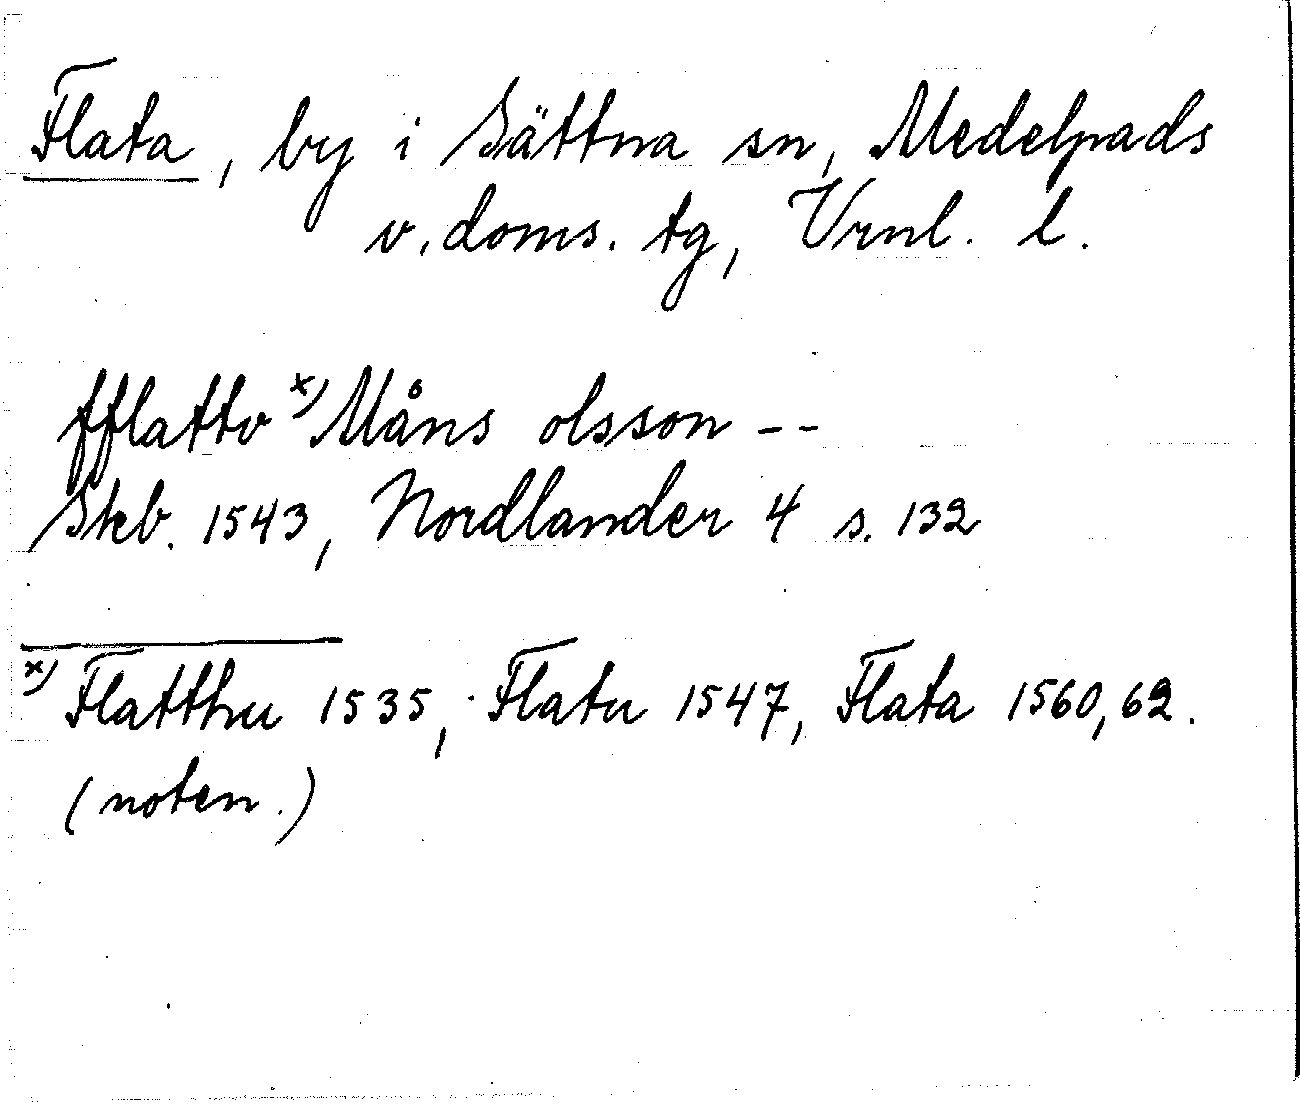 Flata, by i Sättna sn, Medelpads
v. doms. tg, Vrnl. l.
fflattv x) Måns olsson --
Skb. 1543, Nordlander 4 s. 132
x) Flatthu 1535, Flatu 1547, Flata 1560, 62.
(noten.)